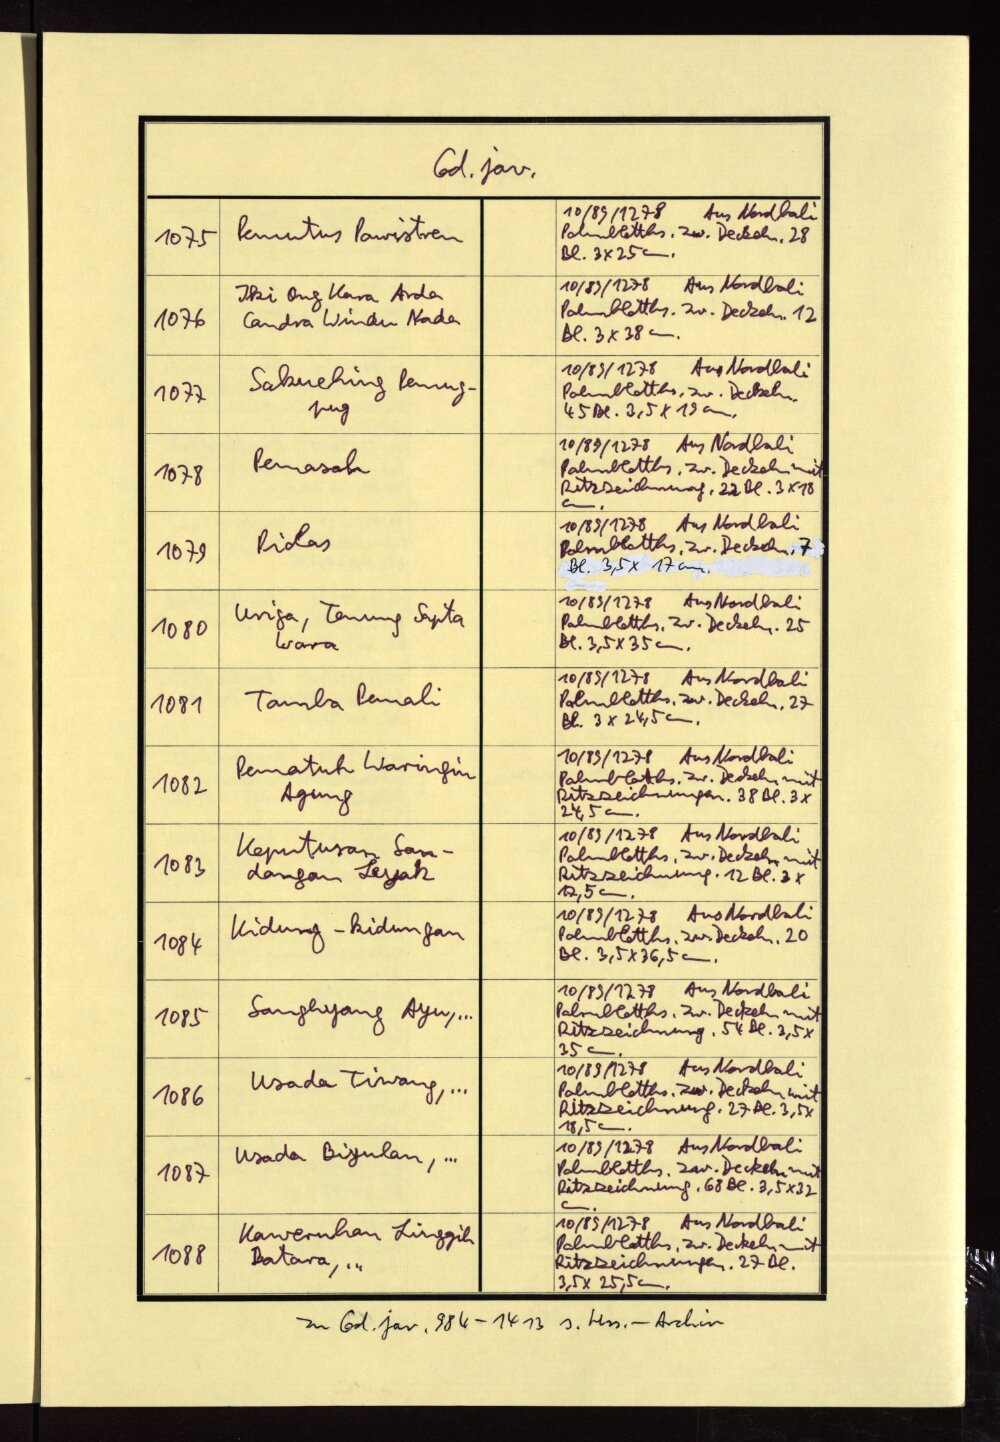 Cod. jav.
1075 Pemutus Pawistren
10/89/1278 Aus Nordbali
Palmblatths. zw. Deckeln. 28
Bl. 3x25cm.
1076 Iki Ong Kara Arda
Candra Windu Nada
10/89/1278 Aus Nordbali
Palmblatths. zw. Deckeln. 12
Bl. 3x38cm.
1077 Sakuching Pemug-
pug
10/89/1278 Aus Nordbali
Palmblatths. zw. Deckeln.
45 Bl. 3,5x19cm.
1078 Pemasah
10/89/1278 Aus Nordbali
Palmblatths. zw. Deckeln mit
Ritzzeichnung. 22 Bl. 3x18
cm.
1079
10/89/1278 Aus Nordbali
Palmblatths. zw. Deckeln. 7
Bl. 3,5x17cm.
1080 Wriga, Tenung Sapta
Wara
10/89/1278 Aus Nordbali
Palmblatths. zw. Deckeln. 25
Bl. 3,5x35cm.
1081 Tamba Pemali
10/89/1278 Aus Nordbali
Palmblatths. zw. Deckeln. 27
Bl. 3x24,5cm.
1082 Pematuh Waringin
Agung
10/89/1278 Aus Nordbali
Palmblatths. zw. Deckeln mit
Ritzzeichnungen. 38 Bl. 3x
24,5cm.
1083 Keputusan San-
dangan Leyak
10/89/1278 Aus Nordbali
Palmblatths. zw. Deckeln mit
Ritzzeichnung. 12 Bl. 3x
17,5cm.
1084 Kidung-kidungan
10/89/1278 Aus Nordbali
Palmblatths. zw. Deckeln. 20
Bl. 3,5x36,5cm.
1085 Sanghyang Ayu,...
10/89/1278 Aus Nordbali
Palmblatths. zw. Deckeln mit
Ritzzeichnung. 54 Bl. 3,5x
35cm.
1086 Usada Tiwang,...
10/89/1278 Aus Nordbali
Palmblatths. zw. Deckeln mit
Ritzzeichnung. 27 Bl. 3,5x
18,5cm.
1087 Usada Biyulan,...
10/89/1278 Aus Nordbali
Palmblatths. zw. Deckeln mit
Ritzzeichnung. 68 Bl. 3,5x32
cm.
1088 Kaweruhan Linggih
Batara,...
10/89/1278 Aus Nordbali
Palmblatths. zw. Deckeln mit
Ritzzeichnungen. 27 Bl.
3,5x25,5cm.
zu Cod. jav. 984-1413 s. Hss.-Archiv